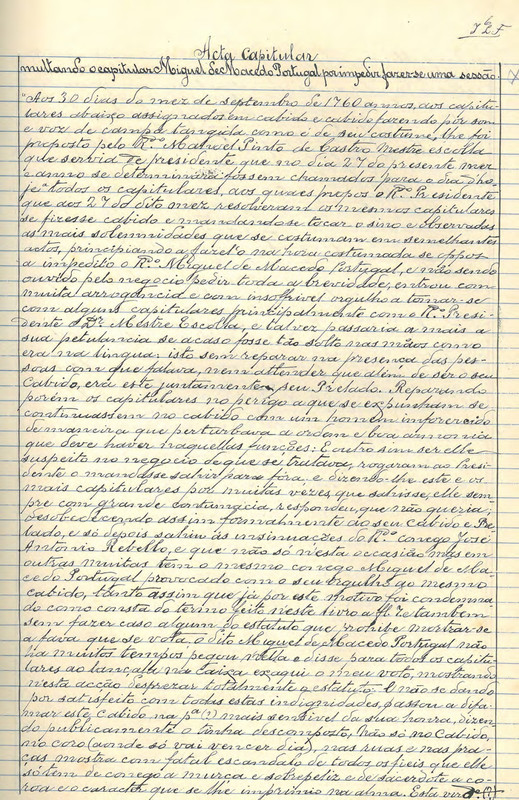 Acta Capitular
multando o capitular Miguel de Macedo Portugal por impedir fazer-se uma sessão.
"Aos 30 dias do mez de septembro de 1760 annos, aos capitu-
lares abaixo assignados em cabido e cabido fazendo por som
e voz de campa tangida como é de seu costume, lhe foi
proposto pelo R.º Manoel Pinto de Castro Mestre escolla
que servia de presidente que no dia 27 do presente mez
e anno se determinára fossem chamados para o dia d'ho-
je todos os capitulares, aos quaes propos o R.º Presidente
que aos 27 do dito mez resolveram os mesmos capitulares
se fizesse cabido e mandando-se tocar o sino e observadas
as mais solemnidades que se costumam em semelhantes
actos, principiando a fazel'o na hora costumada se oppos
a impedil-o o R.º Miguel de Macedo Portugal, e não sendo
ouvido pelo negocio pedir toda a brevidade, entrou com
muita arrogancia e com insoffrivel orgulho a tomar-se
com alguns capitulares principalmente com o R.º Presi-
dente e D.º Mestre Escolla, e talvez passaria a mais a
sua petulancia se acaso fosse tão solto nas mãos como
era na lingua; isto sem reparar na presença das pes-
soas com que falava, nem attender que alem de ser o seu
Cabido, era este juntamente seu Prelado. Reparando
porém os capitulares no perigo a que se expunham se
continuassem no cabido com um homem enforecido
de maneira que perturbava a ordem e boa armonia
que deve haver naquellas funções: E outro sim ser elle
suspeito no negocio de que se tratava, rogaram ao Presi-
dente o mandasse sahir para fóra, e dizendo-lhe este e os
mais capitulares por muitas vezes que sahisse, elle sem-
pre com grande contumacia, respondeu que não queria,
desobedecendo assim formalmente ao seu Cabido e Pre-
lado, e só depois sahiu ás insinuações do R.º conego José
Antonio Rebello, e que não só n'esta occasião mas em
outras muitas tem o mesmo conego Miguel de Ma-
cedo Portugal provocado com o seu orgulho ao mesmo
Cabido, tanto assim que já por este motivo foi condemna-
do como consta do termo feito neste livro a fl. 7 e tambem
sem fazer caso algum do estatuto que prohibe mostrar-se
a fava que se vota, o dito Miguel de Macedo Portugal não
ha muitos tempos pegou n'ella e disse para todos os capitu-
lares ao lançal-a na caixa eis aqui o meu voto, mostrando
nesta acção desprezar totalmente o estatuto; E não se dando
por satisfeito com todas estas indignidades, passou a difa-
mar este Cabido na p.ª (?) mais sensivel da sua honra, dizen-
do publicamente o tinha descomposto, não só no Cabido,
no coro (aonde só vai vencer dia), nas ruas e nas pra-
ças mostra com fatal escandalo de todos os fieis que elle
só tem de conego a murça e sobrepeliz e de sacerdote a co-
rôa e o caracter que se lhe imprimio na alma. Esta ver